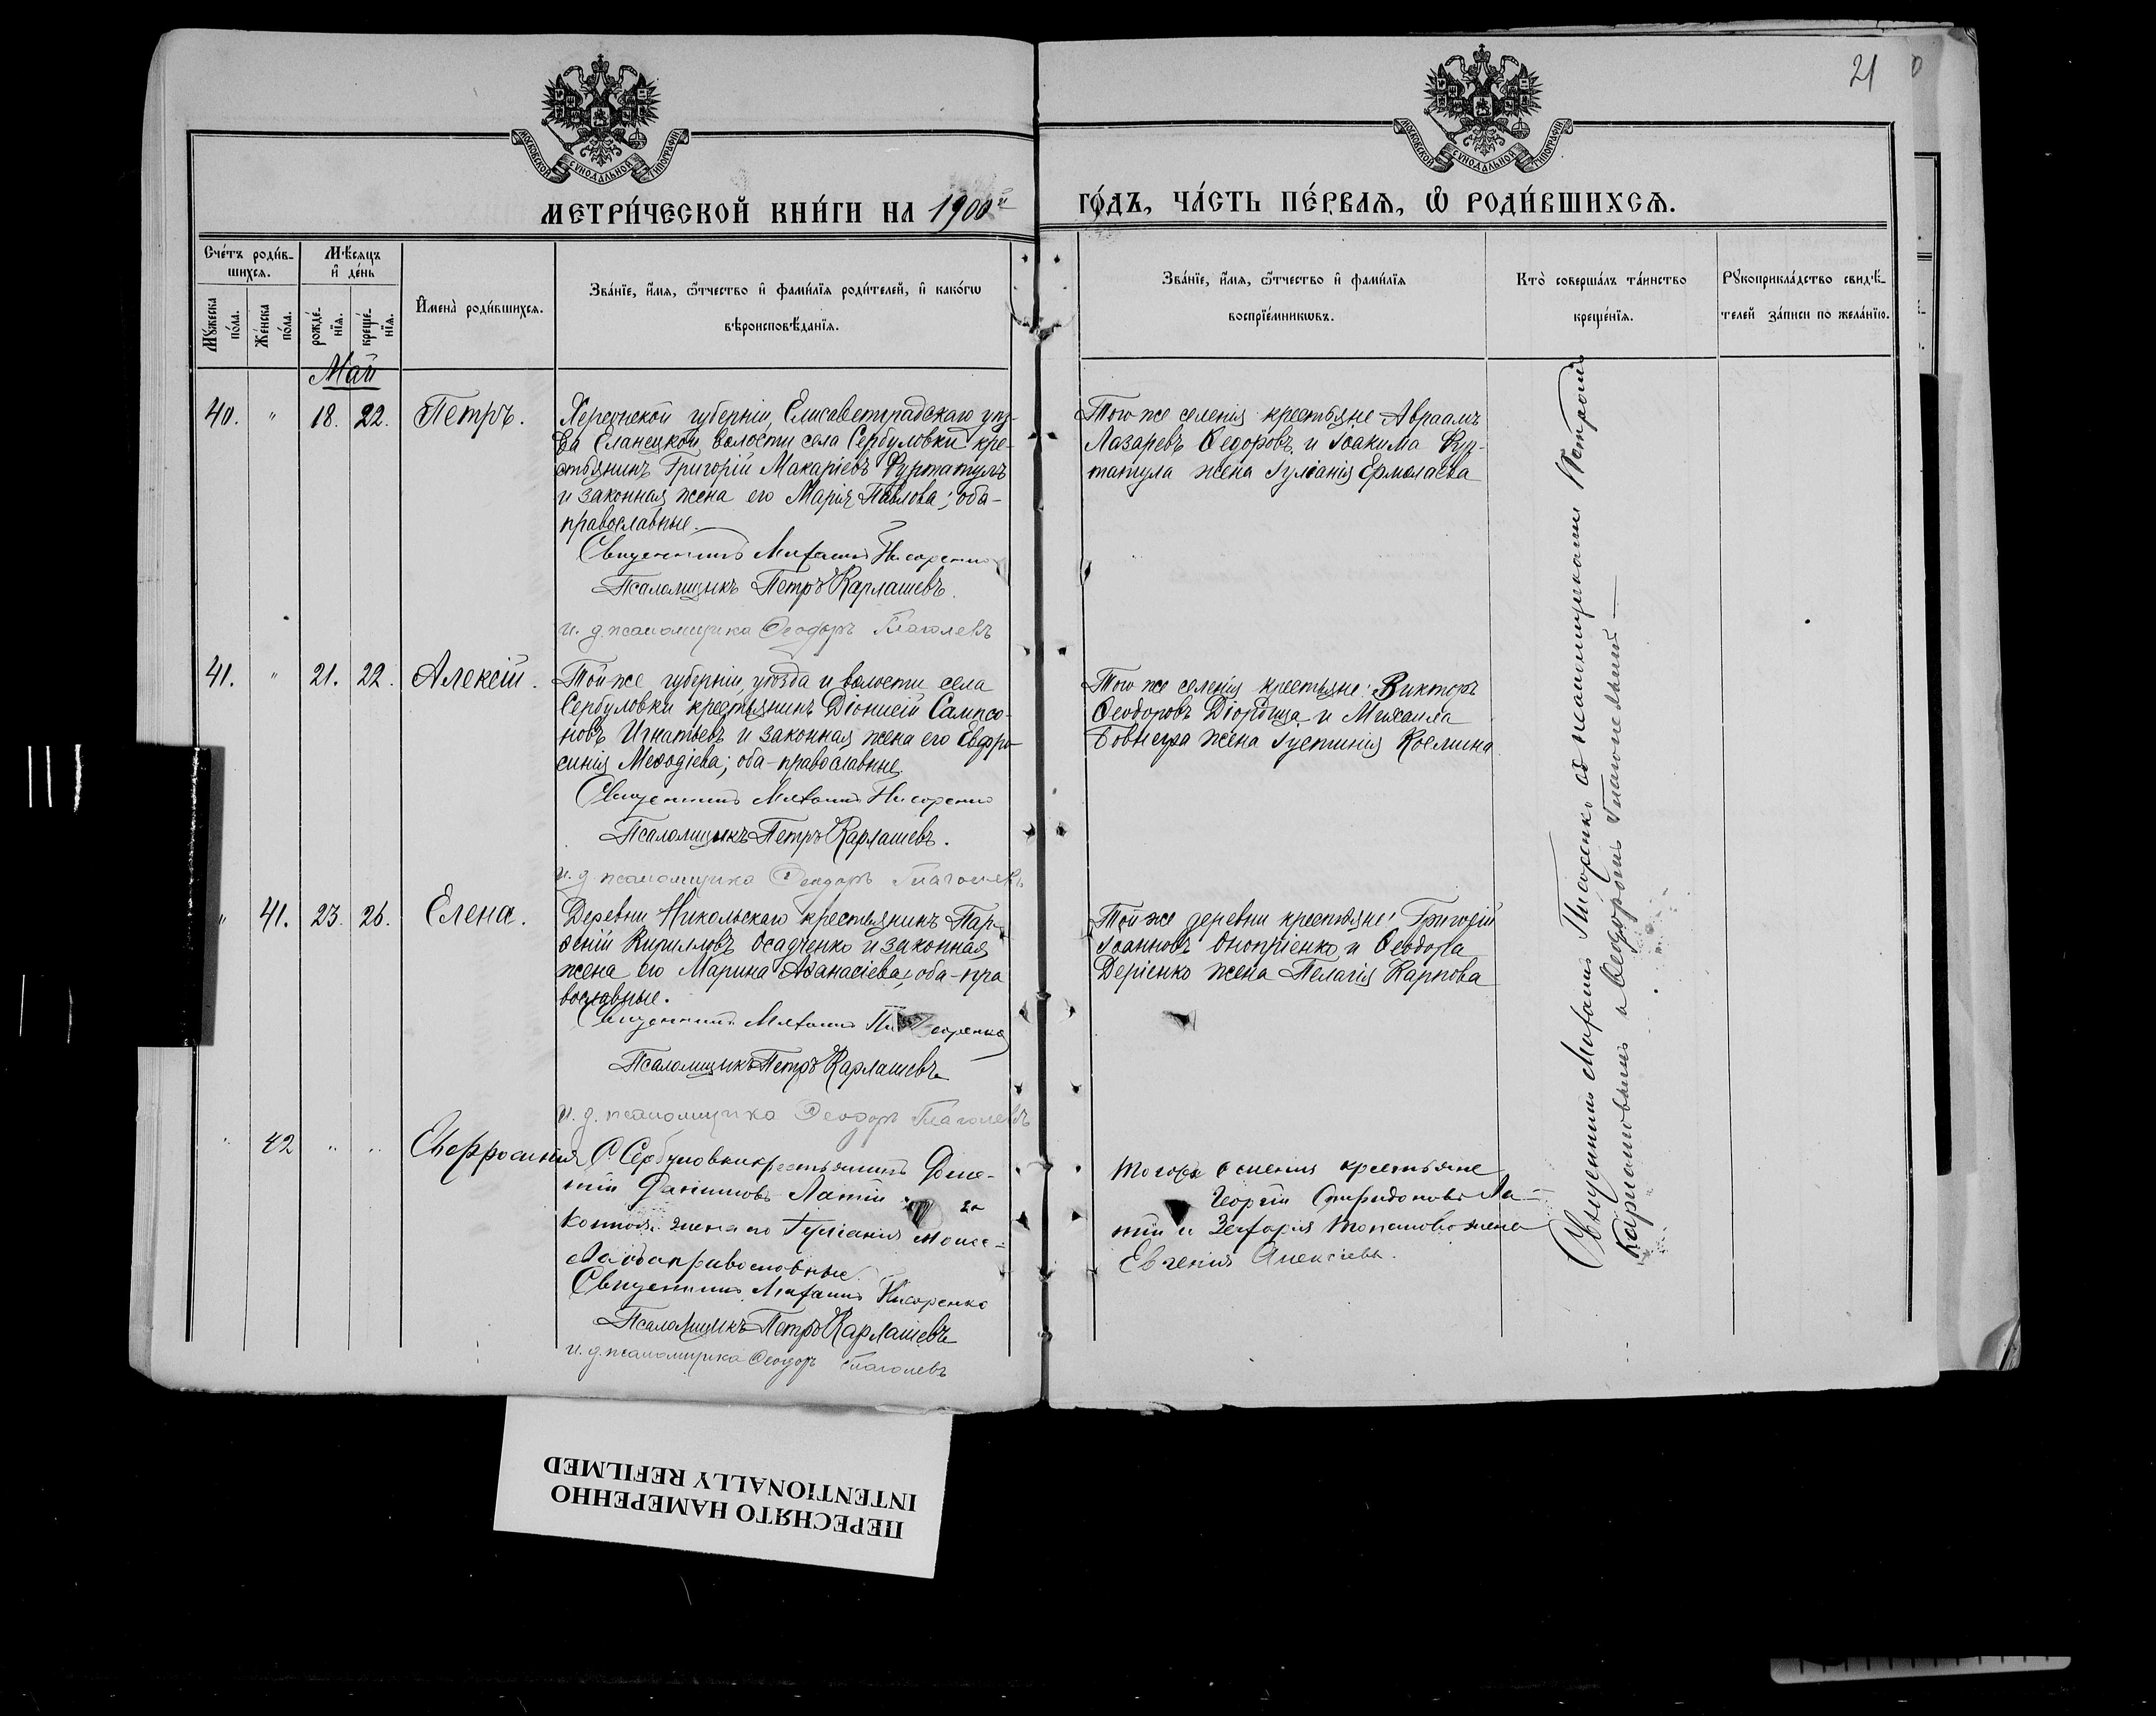 21
МОСКОВСКОЙ СѴНОДАЛЬНОЙ ТИПОГРАФІИ
МОСКОВСКОЙ СѴНОДАЛЬНОЙ ТИПОГРАФІИ
МЕТРИ́ЧЕСКОЙ КНИ́ГИ НА 1900й
ГО́ДЪ, ЧА́СТЬ ПЕ́РВАѦ, Ѡ҆ РОДИ́ВШИХСѦ.
Сче́тъ роди́в-
шихсѧ.
Мѹжеска
по́ла.
Же́нска
по́ла.
Мѣ́сѧцъ
и҆ де́нь
рожде́-
нїѧ.
креще́-
нїѧ.
И҆мена̀ роди́вшихсѧ.
Зва́нїе, и҆́мѧ, ѻ҆́тчество и҆ фами́лїѧ роди́телей, и҆ како́гѡ
вѣроисповѣ́данїѧ.
Зва́нїе, и҆́мѧ, ѻ҆́тчество и҆ фами́лїѧ
воспрїе́мникѡвъ.
Кто̀ соверша́лъ та́инство
креще́нїѧ.
Рѹкоприкла́дство свидѣ́-
телей за́писи по жела́нїю.
Май
40. " 18. 22. Петръ.
Херсонской губерніи, Елисаветградскаго уѣз-
да Еланецкой волости села Сербуловки кре-
стьянинъ Григорій Макаріевъ Фуртатулъ
и законная жена его Марія Павлова; оба-
православные.
Священникъ Михаилъ Писаренко
Псаломщикъ Петръ Карлашевъ.
и. д. псаломщика Ѳеодоръ Глаголевъ
Того же селенія крестьяне Авраамъ
Лазаревъ Ѳедоровъ и Іоакима Фур-
татула жена Іуліанія Ермолаева
41. " 21. 22. Алексій.
Той же губерніи, уѣзда и волости села
Сербуловки крестьянинъ Діонисій Сампсо-
новъ Игнатьевъ и законная жена его Евфро-
синія Меѳодіева; оба-православные.
Священникъ Михаилъ Писаренко
Псаломщикъ Петръ Карлашевъ.
и. д. псаломщика Ѳеодоръ Глаголевъ
Того же селенія крестьяне: Викторъ
Ѳеодоровъ Діордица и Михаила
жена Іустинія
" 41. 23. 26. Елена.
Деревни Никольскаго крестьянинъ Пар-
ѳеній Кирилловъ Осадченко и законная
жена его Марина Аѳанасіева; оба-пра
вославные.
Священникъ Михаилъ Писаренко
Псаломщикъ Петръ Карлашевъ
и. д. псаломщика Ѳеодоръ Глаголевъ
Той же деревни крестьяне: Григорій
Іоанновъ Оноприенко и Ѳеодора
Деріенко жена Пелагія Карпова
" 42 " " Евфросинія
С. Сербуловки крестьянинъ Доме-
тій Даніиловъ Латій и за
конная жена его Іуліанія Моисе=
ева оба православные.
Священникъ Михаилъ Писаренко
Псаломщикъ Петръ Карлашевъ
и. д. псаломщика Ѳеодоръ Глаголевъ
Того же селенія крестьяне
Георгій Спиридоновъ Ла=
тій и Захарія жена
Евгенія Алексіева.
Священникъ Михаилъ Писаренко съ псаломщиками Петромъ
Карлашовымъ и Ѳеодоромъ Глаголевымъ
ПЕРЕСНЯТО НАМЕРЕННО
INTENTIONALLY REFILMED